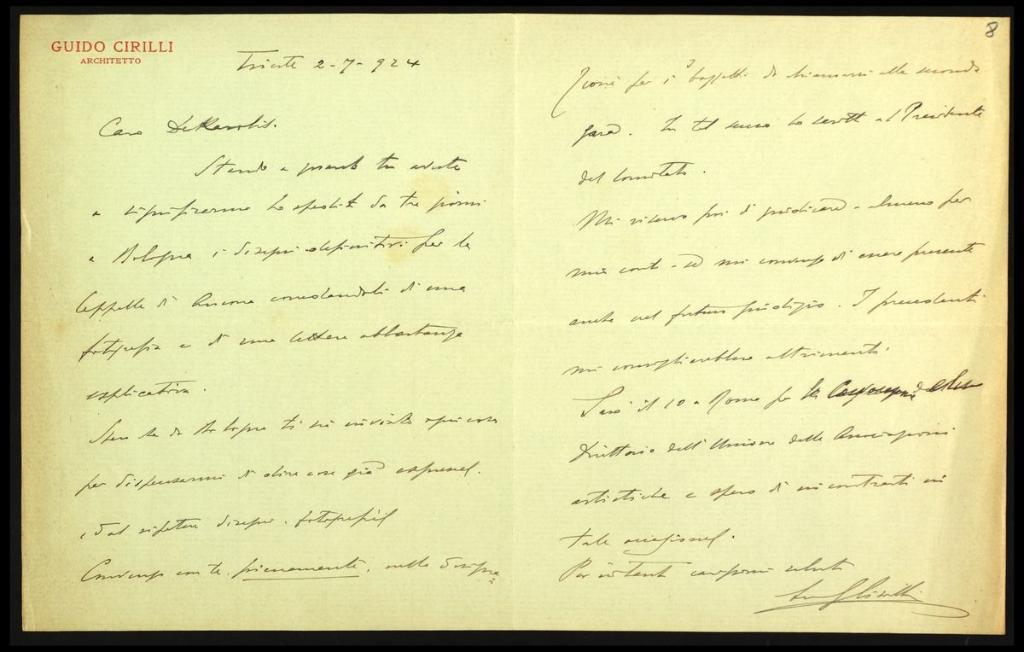 GUIDO CIRILLI
ARCHITETTO
Trieste 2-7-924
Caro De Carolis.
Stando a quanto tu avesti
a significarmi ho spedito da tre giorni
a Bologna i disegni definitivi per la
Cappella di Ancona corredandoli di una
fotografia e di una lettera abbastanza
esplicativa.
da Bologna ti sia inviata ogni cosa
per dispensarmi di dire cose già espresse
e dal ripetere disegni e fotografie
Convengo con te pienamente, nella designa=
8
zione per i 3 bozzetti da chiamarsi alla seconda
gara. In tal senso ho scritto al Presidente
del Comitato.
Mi riservo poi di giudicare - almeno per
mio conto - se mi convenga di essere presente
anche nel futuro giudizio. I precedenti
mi consiglierebbero altrimenti.
Sarò il 10 a Roma per
Direttorio dell'Unione delle Associazioni
artistiche e spero di incontrarti in
tale occasione.
Per intanto saluti
G Cirilli